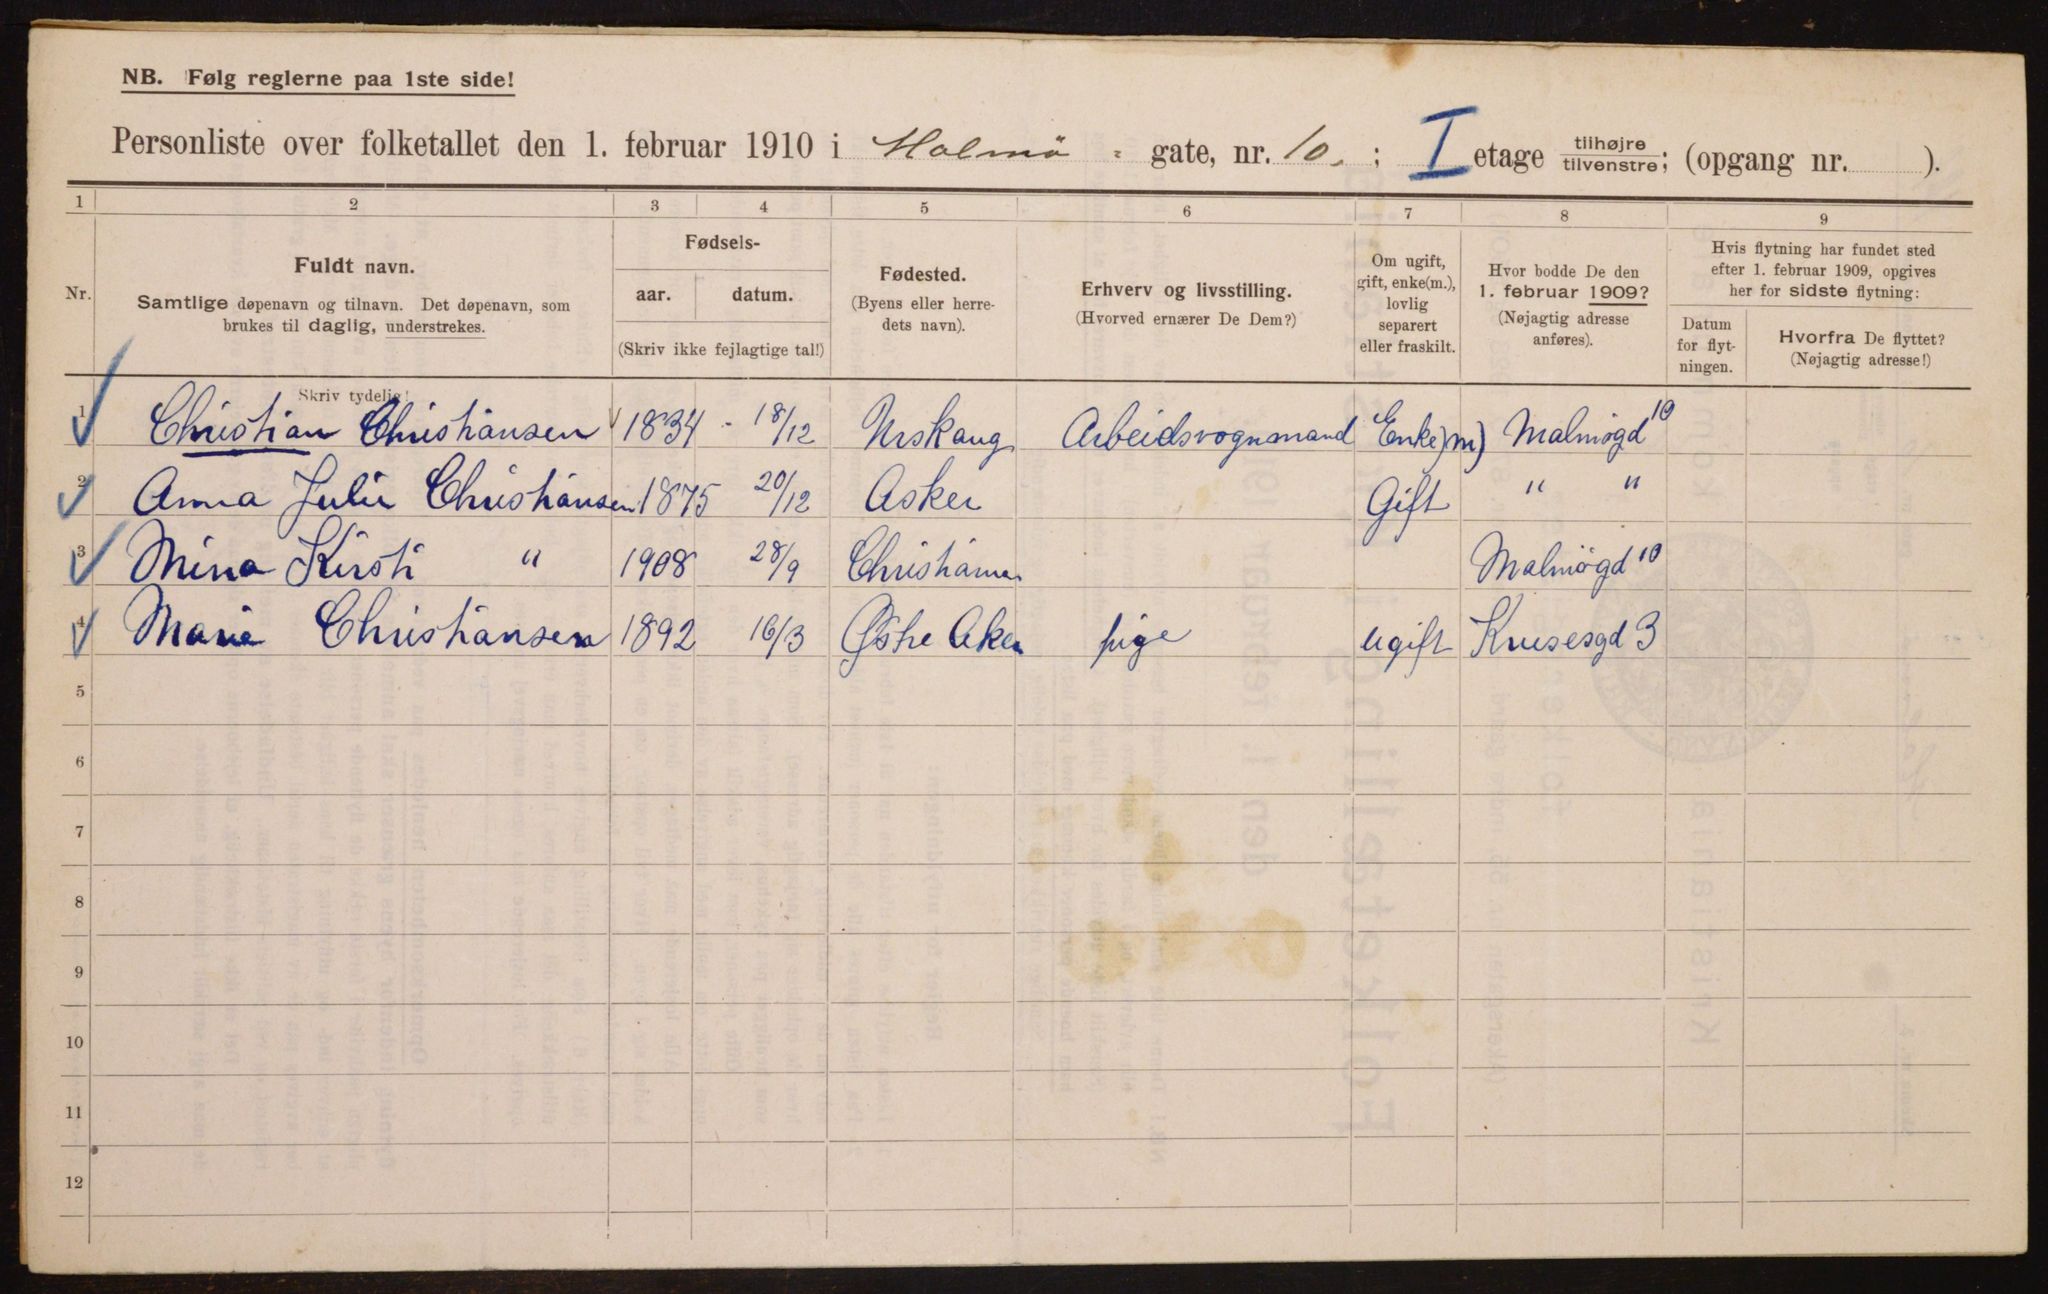 NB. Følg reglerne paa 1ste side!
Personliste over folketallet den 1. februar 1910 i Malmö - gate, nr. 10. ; I etage tilhøjre tilvenstre; (opgang nr. ).
1 2 3 4 5 6 7 8 9
Nr.
Fuldt navn.
Samtlige døpenavn og tilnavn. Det døpenavn, som
brukes til daglig, understrekes.
Fødsels-
aar. datum.
(Skriv ikke fejlagtige tal!)
Fødested.
(Byens eller herre-
dets navn).
Erhverv og livsstilling.
(Hvorved ernærer De Dem?)
Om ugift,
gift, enke(m.),
lovlig
separert
eller fraskilt.
Hvor bodde De den
1. februar 1909?
(Nøjagtig adresse
anføres).
Hvis flytning har fundet sted
efter 1. februar 1909, opgives
her for sidste flytning:
Datum
for flyt-
ningen.
Hvorfra De flyttet?
(Nøjagtig adresse!)
Skriv tydelig!
1 Christian Christiansen 1834 - 18/12 Urskaug Arbeidsvognmand Enke(m) Malmøgd 10
2 Anna Julie Christiansen 1875 20/12 Asker Gift " "
3 Mina Kirsti " 1908 28/9 Christiania Malmøgd 10
4 Marie Christiansen 1892 16/3 Østre Aker pige ugift Krusesgd 3
5
6
7
8
9
10
11
12